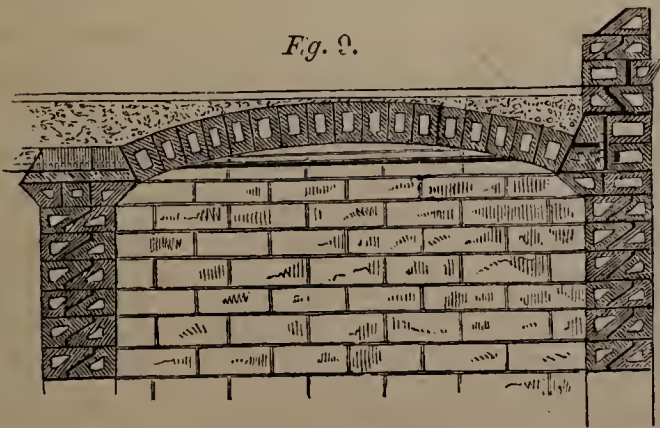 Fig. 9.